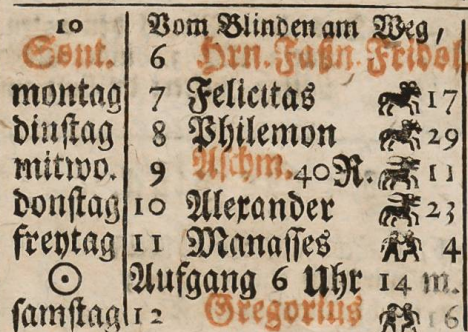 10 Vom Blinden am Weg,
Sont. 6 Hrn. Faßn. Fridol
montag 7 Felicitas 17
dinstag 8 Philemon 29
mitwo. 9 Aschm. 40 R. 11
donstag 10 Alexander 23
freytag 11 Manasses 4
☉ Aufgang 6 Uhr 14 m.
samstag 12 Gregorius 16